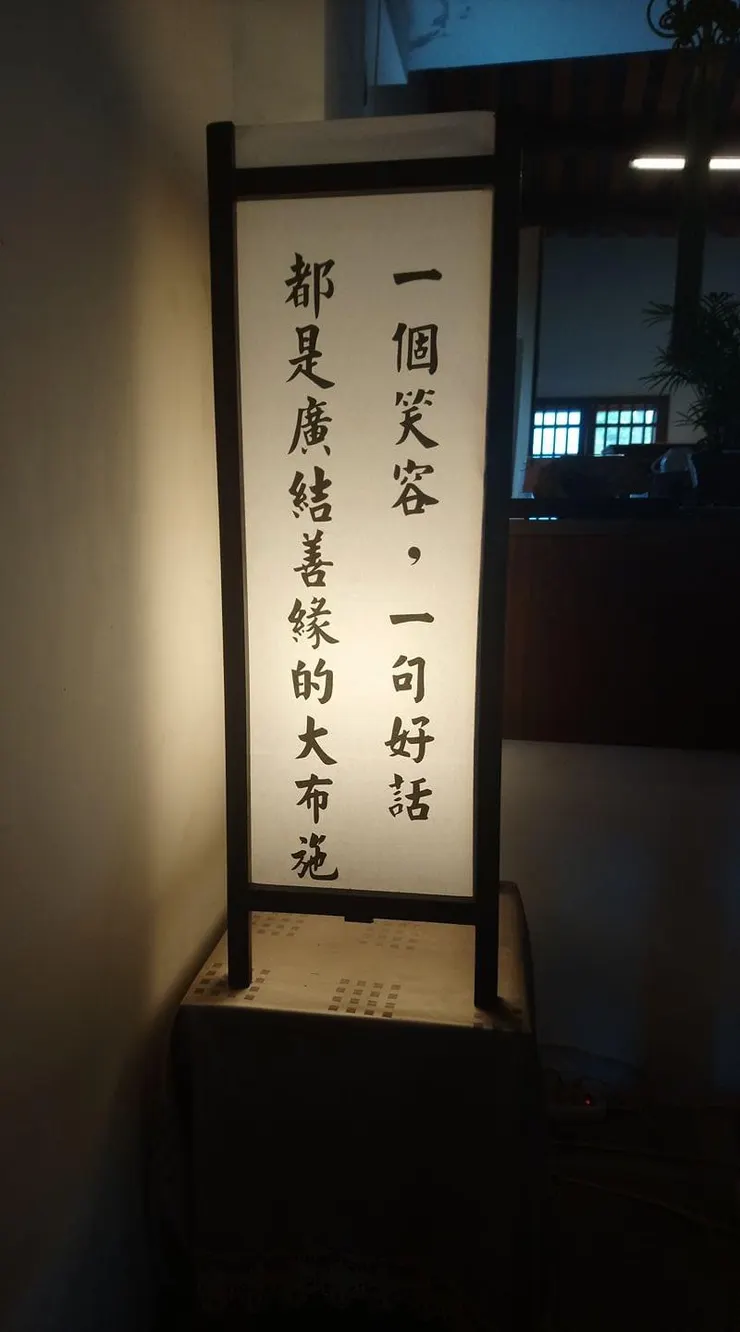 一個笑容，一句好話
都是廣結善緣的大布施